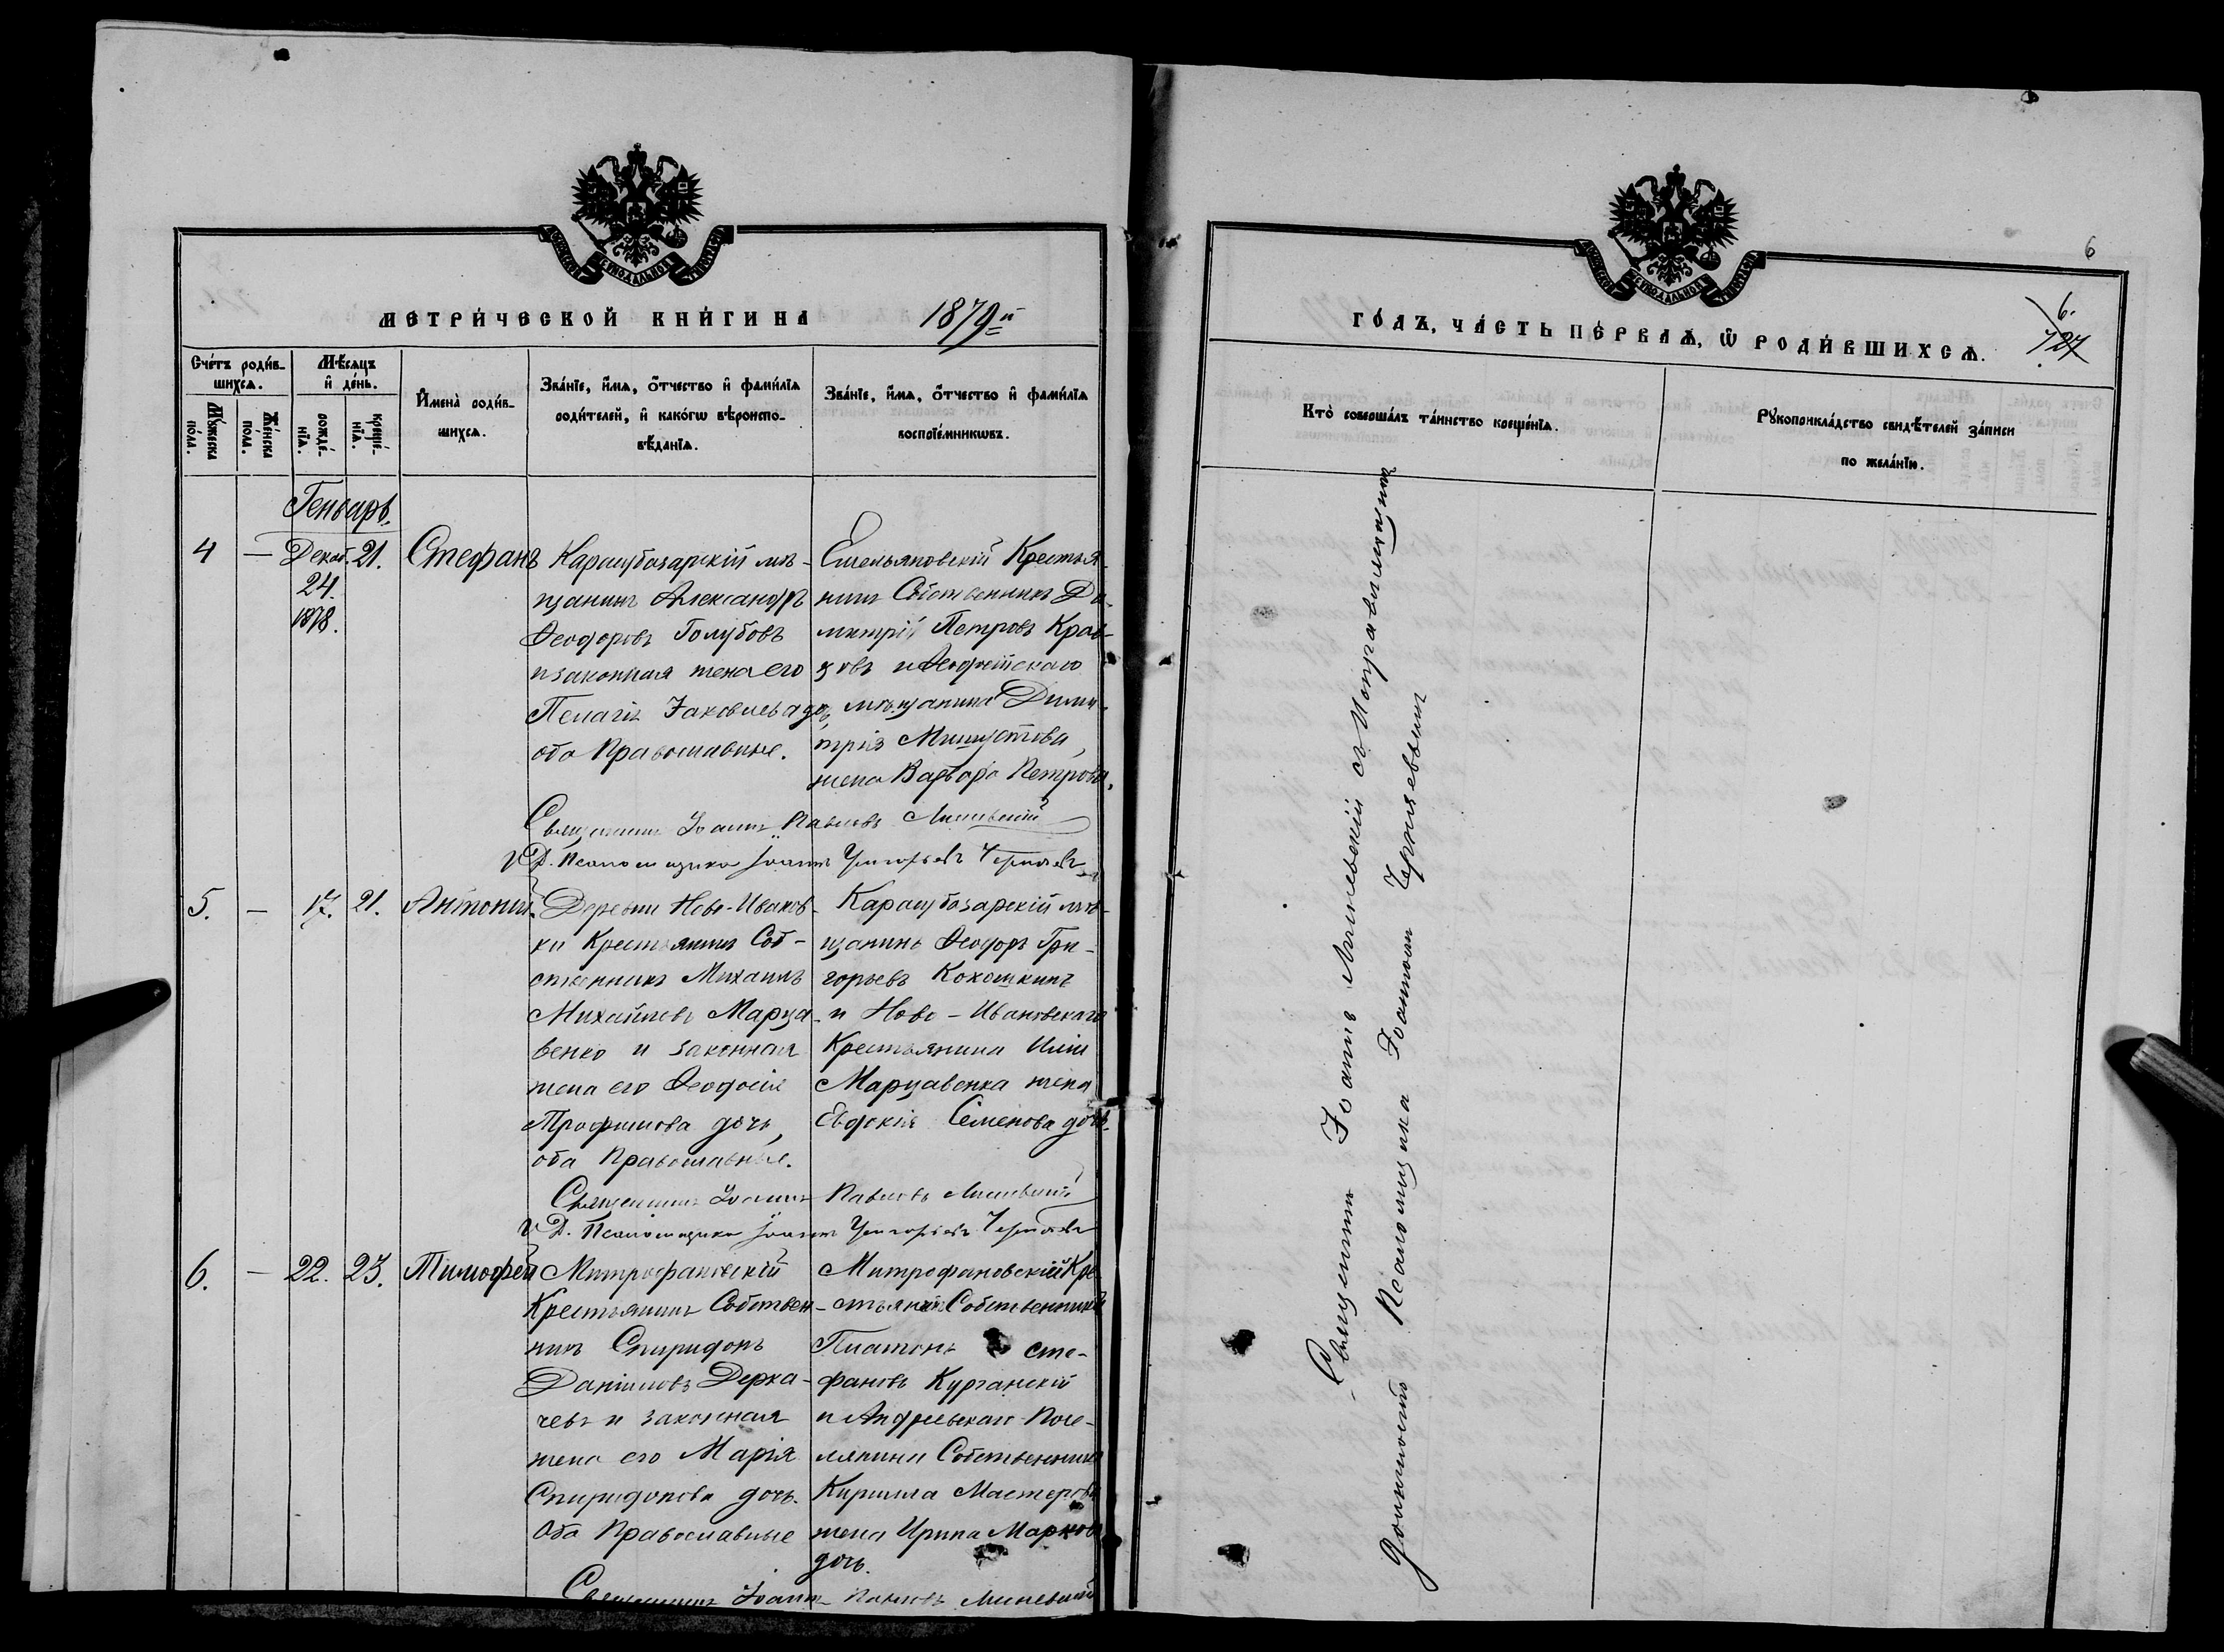 МЕТРИ́ЧЕСКОЙ КНИ́ГИ НА 1879й
Счётъ роди́в-
шихсѧ.
Мѣ́сѧцъ
и҆ де́нь.
И҆мена̀ роди́в-
шихсѧ.
Зва́нїе, и҆́мѧ, ѻ҆́тчество и҆ фами́лїѧ
роди́телей, и҆ како́гѡ вѣроиспо-
вѣ́данїѧ.
Зва́нїе, и҆́мѧ, ѻ҆́тчество и҆ фами́лїѧ
воспрїе́мникѡвъ.
Мꙋ́жеска
по́ла.
Же́нска
по́ла.
рожде́-
нїѧ.
креще́-
нїѧ.
Генварь.
4 — Декаб. 21. Стефанъ
24.
1878.
Карасубазарскій мѣ-
щанинъ Александръ
Ѳеодоровъ Голубовъ
и законная жена его
Пелагія Іаковлева доч,
оба Православные.
Емельяновскій Крестья-
нинъ Собственникъ Ди-
митрій Петровъ Крав-
цовъ и Ѳеодосійскаго
мѣщанина Дими-
трія Мишустова,
жена Варвара Петрова.
Священникъ Іоаннъ Павловъ
И. Д. Псаломщика Іоаннъ Григорьевъ Черняевъ
5. — 17. 21. Антоній
Деревни Ново-Иванов-
ки Крестьянинъ Соб-
ственникъ Михаилъ
Михайловъ Марца-
венко и законная
жена его Ѳеодосія
Трофимова дочь,
оба Православные.
Карасубазарскій мѣ-
щанинъ Ѳеодоръ Гри-
горьевъ Кокошкинъ
и Ново-Ивановскаго
Крестьянина Иліи
Марцавенка жена
Евдокія Семенова дочь.
Священникъ Іоаннъ Павловъ
И. Д. Псаломщика Іоаннъ Григорьевъ Черняевъ
6. — 22. 23. Тимофей
Митрофановскій
Крестьянинъ Собствен-
никъ Спиридонъ
Даніиловъ Дерка-
чевъ и законная
жена его Марія
Спиридонова дочь.
Оба Православные
Митрофановскій Кре-
стьянинъ Собственникъ
Платонъ Сте-
фановъ Курганскій
и Андреевскаго Посе-
лянина Собственника
Кирилла Мастерова
жена Ирина Маркова
дочь.
Священникъ Іоаннъ Павловъ
6
ГО́ДЪ, ЧА́СТЬ ПЕ́РВАѦ, Ѿ РОДИ́ВШИХСѦ.
6.
727
Кто̀ соверша́лъ та́инство креще́нїѧ.
Рꙋкоприкла́дство свидѣ́телей за́писи
по жела́нїю.
Священникъ Іоаннъ съ Исправляющимъ
должность Псаломщика Іоанномъ Черняевымъ